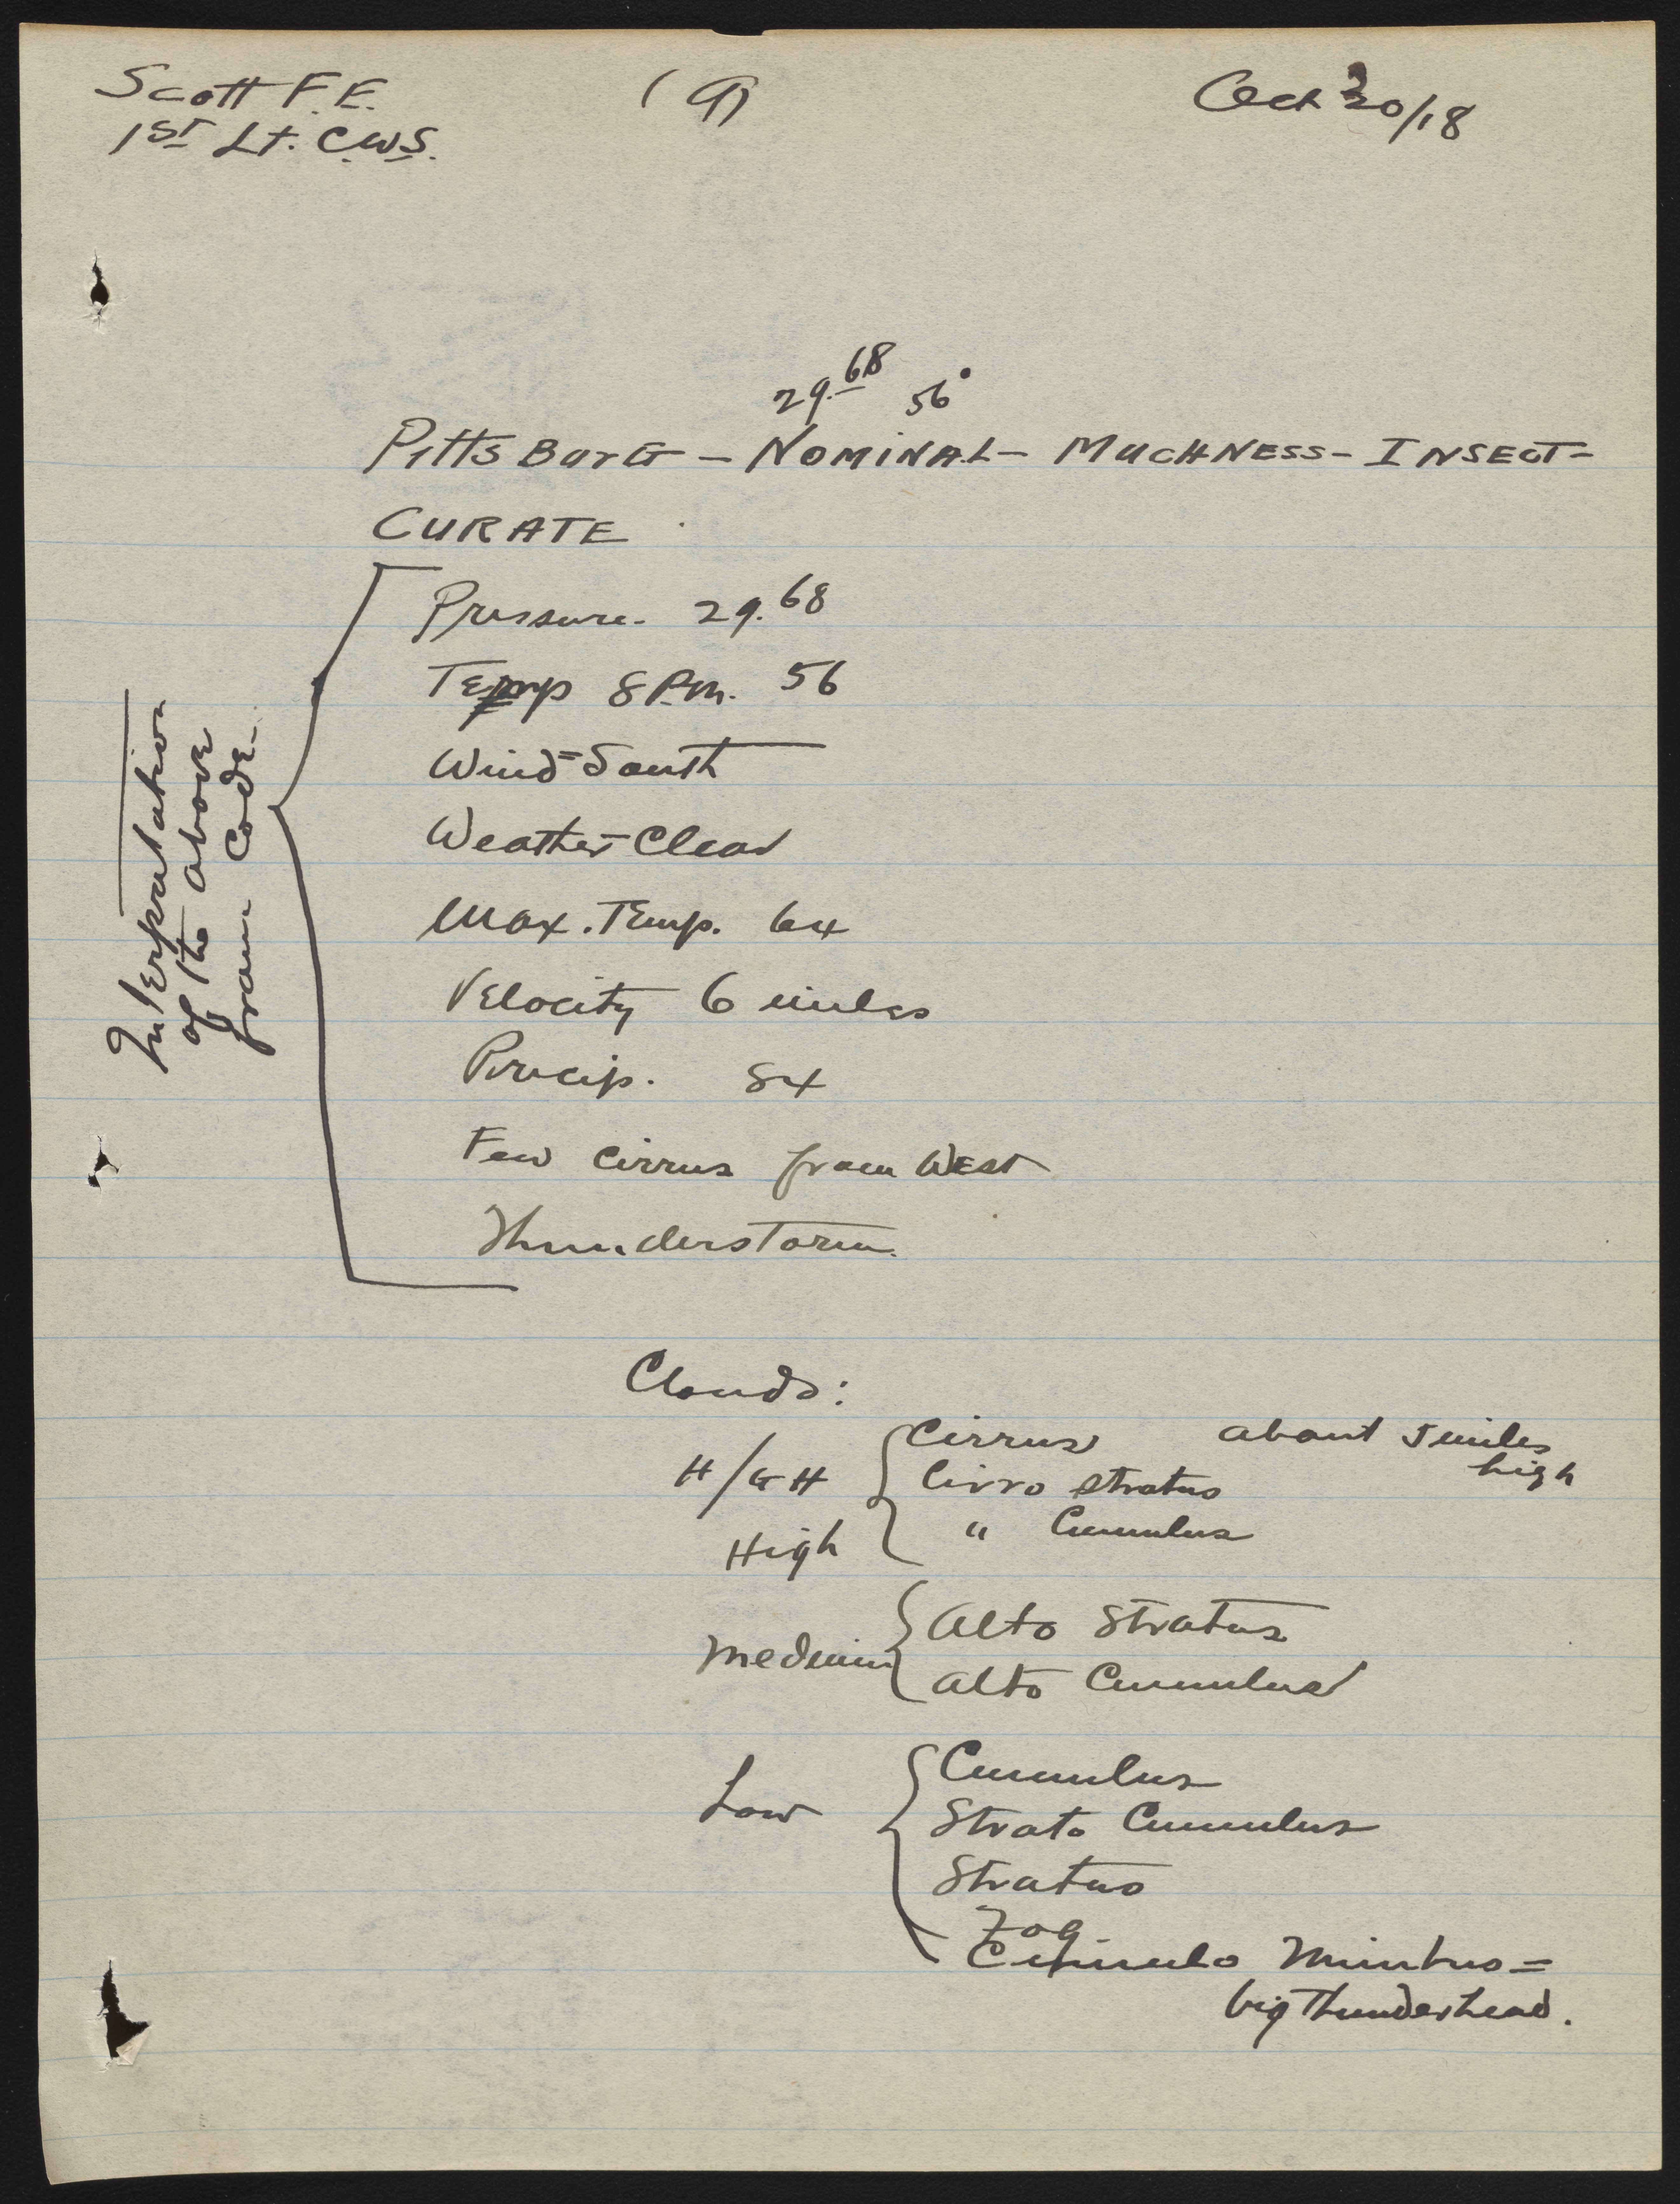 Scott F. E. (9) Oct 30/18
1st Lt. C.W.S.
29.68 56°
PittsBurG - NOMINAL - MUCHNESS - INSECT -
CURATE
Interpretation
of the above
from Code.
Pressure. 29.68
Temp 8 P.m. 56
Wind = South
Weather Clear
Max. Temp. 64
Velocity 6 miles
Precip. 84
Few cirrus from West
Thunderstorm.
Clouds:
HIGH Cirrus about 5 miles
high
Cirro stratus
High " Cumulus
Medium Alto Stratus
alto Cumulus
Low Cumulus
Strato Cumulus
Stratus
Fog
Cumulo Nimbus =
big Thunderhead.